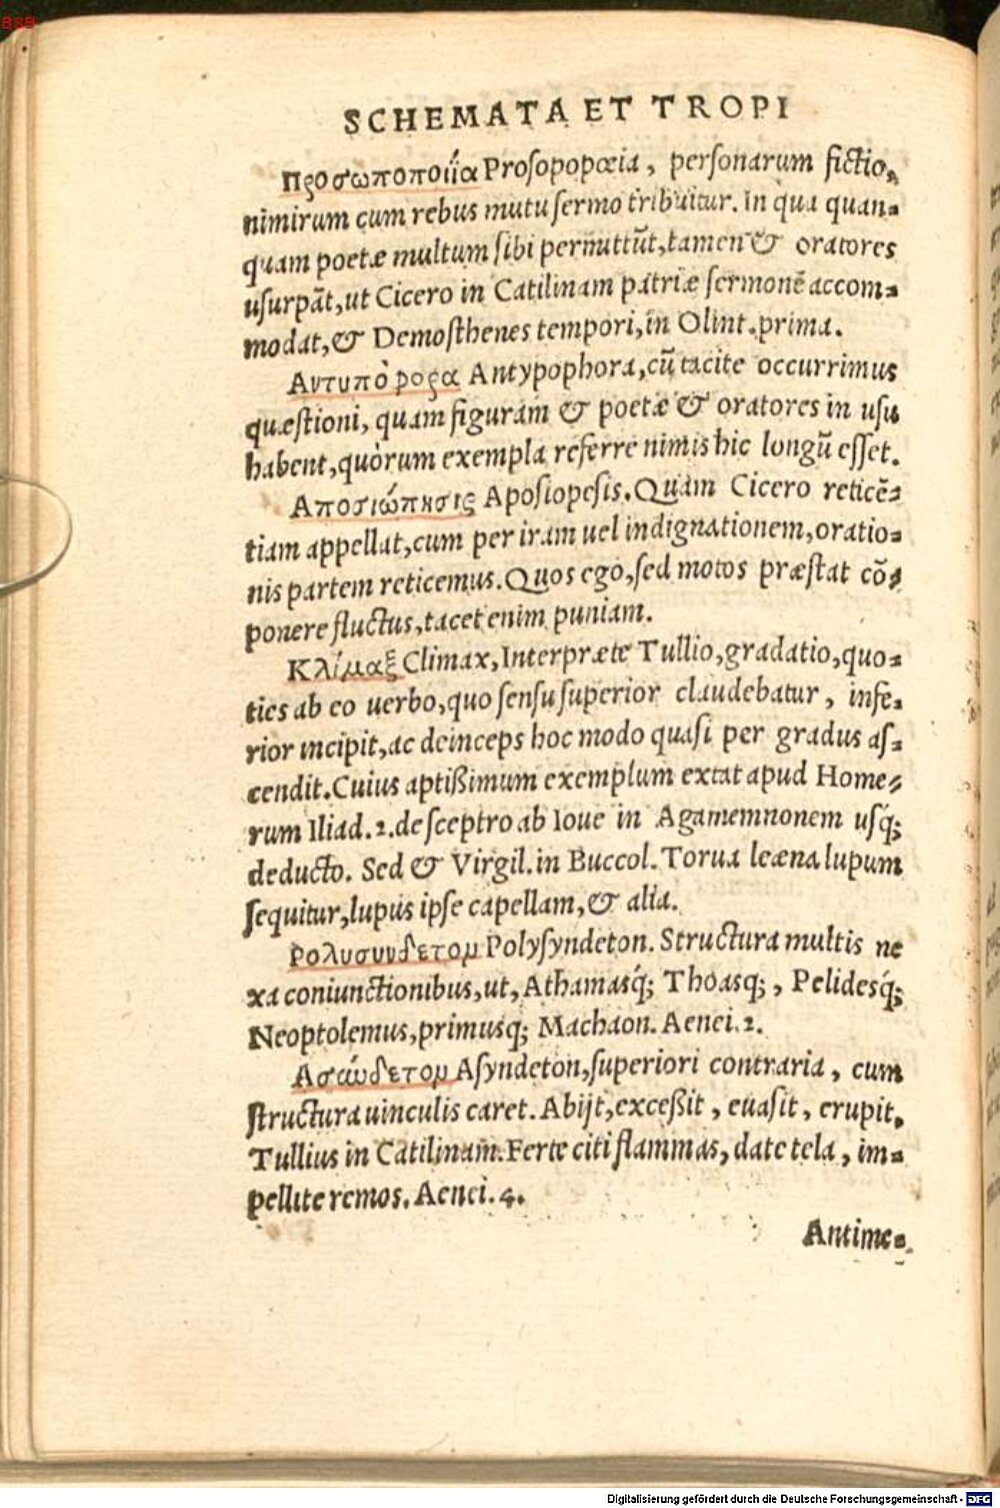 BSB
SCHEMATA ET TROPI
Προσωποποιΐα Prosopopœia, personarum fictio,
nimirum cum rebus mutu sermo tribuitur. In qua quan-
quam poetæ multum sibi permittũt, tamen & oratores
usurpãt, ut Cicero in Catilinam patriæ sermonẽ accom-
modat, & Demosthenes tempori, in Olint. prima.
Αντυπὸροφα Antypophora, cũ tacite occurrimus
quæstioni, quam figuram & poetæ & oratores in usu
habent, quorum exempla referre nimis hic longũ esset.
Αποσιώπησις Aposiopesis. Quam Cicero reticẽ-
tiam appellat, cum per iram uel indignationem, oratio-
nis partem reticemus. Quos ego, sed motos præstat cõ-
ponere fluctus, tacet enim puniam.
Κλίμαξ Climax, Interpræte Tullio, gradatio, quo-
ties ab eo uerbo, quo sensu superior claudebatur, infe-
rior incipit, ac deinceps hoc modo quasi per gradus as-
cendit. Cuius aptißimum exemplum extat apud Home-
rum Iliad. 2. de sceptro ab Ioue in Agamemnonem usq́;
deducto. Sed & Virgil. in Buccol. Torua leæna lupum
sequitur, lupus ipse capellam, & alia.
Ρολυσυνδετομ Polysyndeton. Structura multis ne
xa coniunctionibus, ut, Athamasq́; Thoasq;, Pelidesq́;
Neoptolemus, primusq; Machaon. Aenei. 2.
Ασώδετομ Asyndeton, superiori contraria, cum
structura uinculis caret. Abijt, exceßit, euasit, erupit.
Tullius in Catilinam. Ferte citi flammas, date tela, im-
pellite remos. Aenei. 4.
Antime-
Digitalisierung gefördert durch die Deutsche Forschungsgemeinschaft - DFG